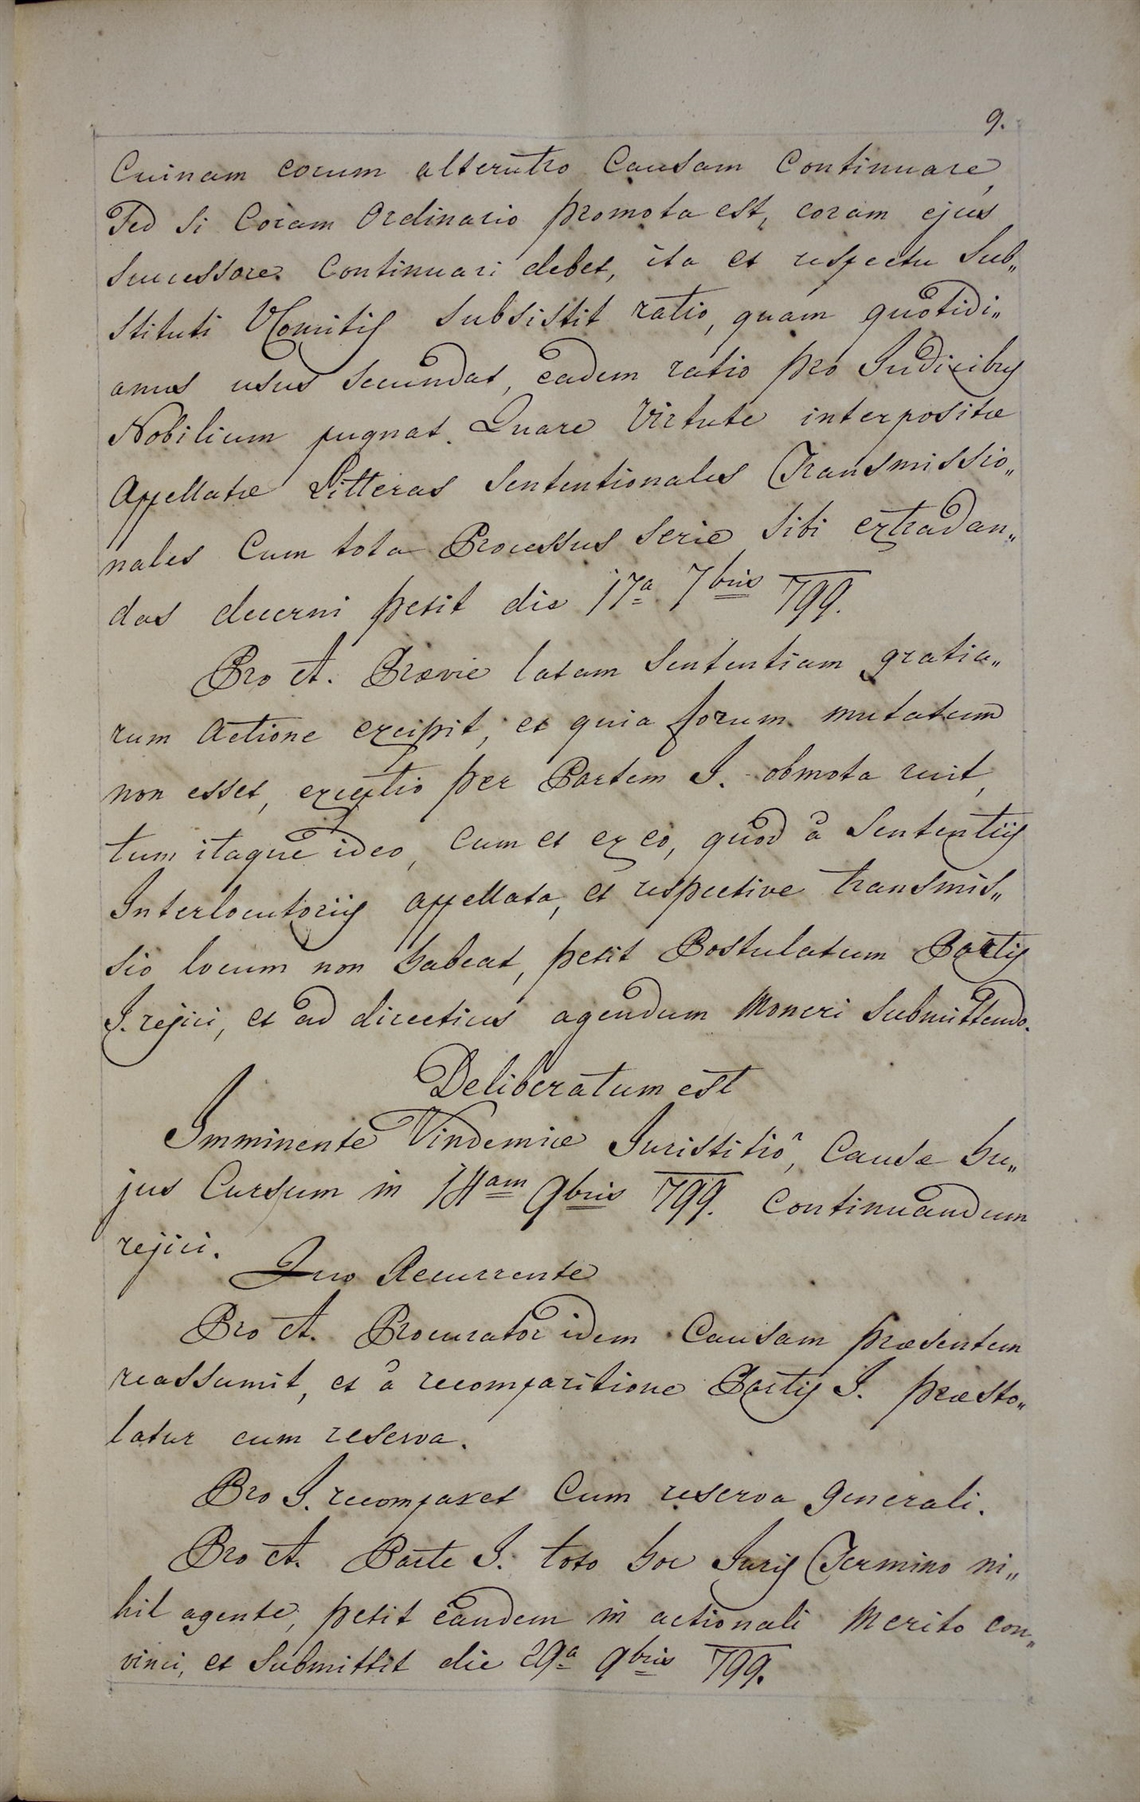 9.
Cuinam eorum alterutro Causam Continuare,
Sed si Coram Ordinario promota est, coram ejus
Successore Continuari debet, ita et respectu Sub„
stituti VComitis subsistit ratio, quam quotidi„
anus usus secundat, eadem ratio pro Judicibus
Nobilium pugnat. Quare Virtute interpositæ
Appellatæ Litteras Sententionales Transmissio„
nales Cum tota Processus Serie sibi extradan„
das decerni petit die 17a 7bris 799.
Pro A. Prævie latam Sententiam gratia„
rum Actione excipit, et quia forum mutatum
non esset, exceptio per Partem I. obmota ruit,
tum itaque ideo, cum et ex eo, quod à Sententiis
Interlocutoriis appellata, et respective transmis„
sio locum non habeat, petit Postulatum Partis
I. rejici, et ad directius agendum Moneri Submittendo.
Deliberatum est
Imminente Vindemiæ Juristitio, Causæ hu„
jus Cursum in 14am 9bris 799. Continuandum
rejici.
Quo Recurrente
Pro A. Procurator idem Causam præsentem
reassumit, et à recomparitione Partis I. præsto„
latur cum reserva.
Pro I. recomparet Cum reserva generali.
Pro A. Parte I. toto hoc Juris Termino ni„
hil agente, petit eandem in actionali Merito con„
vinci, et Submittit die 29a 9bris 799.